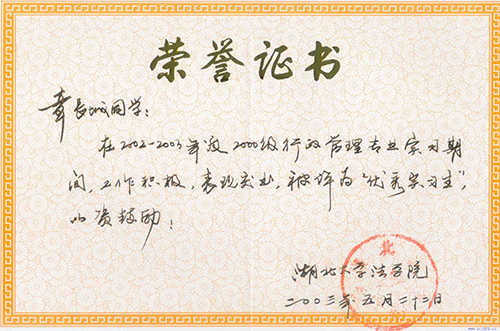 荣誉证书
章长城同学：
在2002-2003年度2000级行政管理专业实习期
间，工作积极，表现突出，被评为“优秀实习生”，
以资鼓励！
湖北大学法学院
二00三年五月二十二日